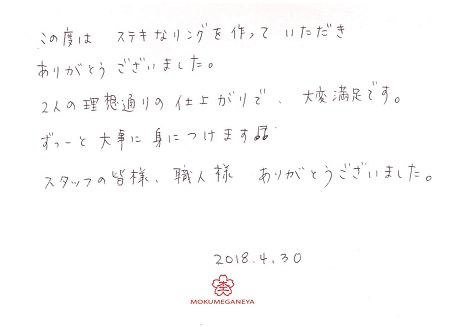 この度は ステキなリングを作って いただき
ありがとう ございました。
2人の理想通りの仕上がりで、大変満足です。
ずっーと大事に身につけます♬
スタッフの皆様、職人様 ありがとうございました。
2018.4.30
MOKUMEGANEYA